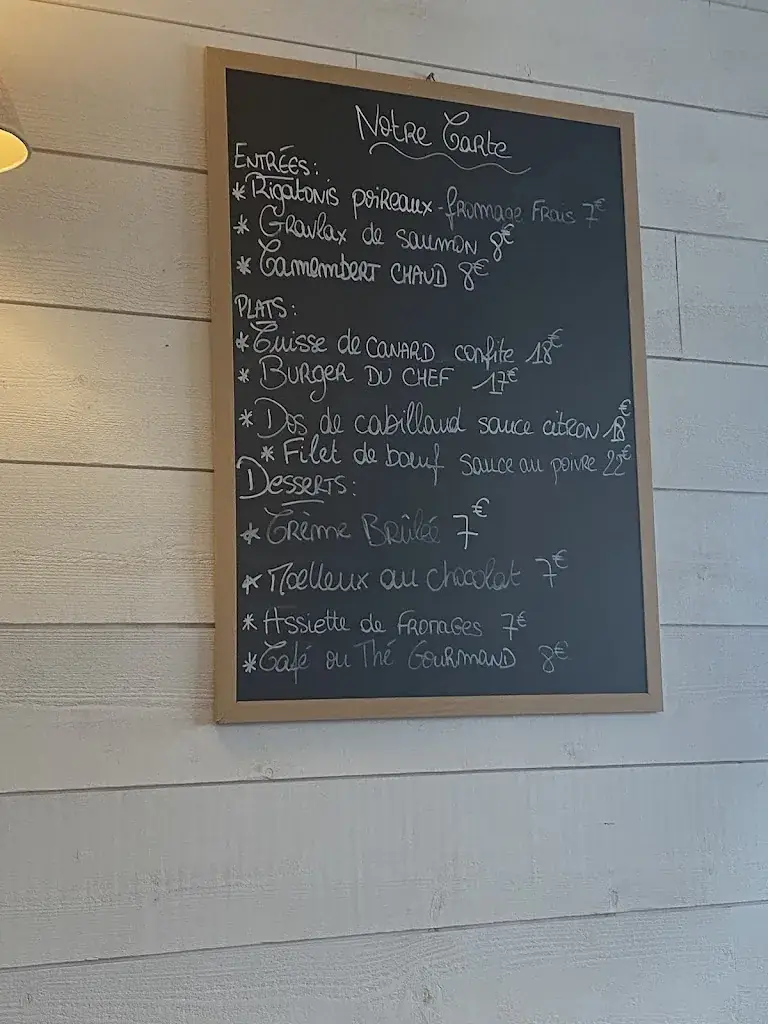 Notre Carte
ENTRÉES:
* Rigatonis poireaux - fromage Frais 7€
* Gravlax de saumon 8€
* Camembert CHAUD 8€
PLATS:
* Cuisse de CANARD confite 18€
* BURGER DU CHEF 17€
* Dos de cabillaud sauce citron 18€
* Filet de bœuf sauce au poivre 22€
Desserts:
* Crème Brûlée 7€
* Moelleux au chocolat 7€
* Assiette de FROMAGES 7€
* Café ou Thé GOURMAND 8€